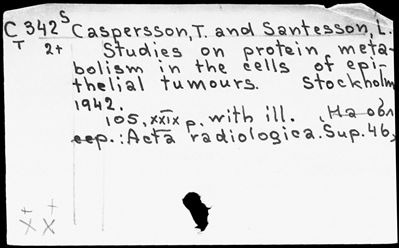 C 342 S Caspersson, T. and Santesson, L.
T 2+ Studies on protein meta-
bolism in the cells of epi-
thelial tumours. Stockholm,
1942.
105, XXIX p. with ill. (На обл
сер.: Acta radiologica. Sup. 46)